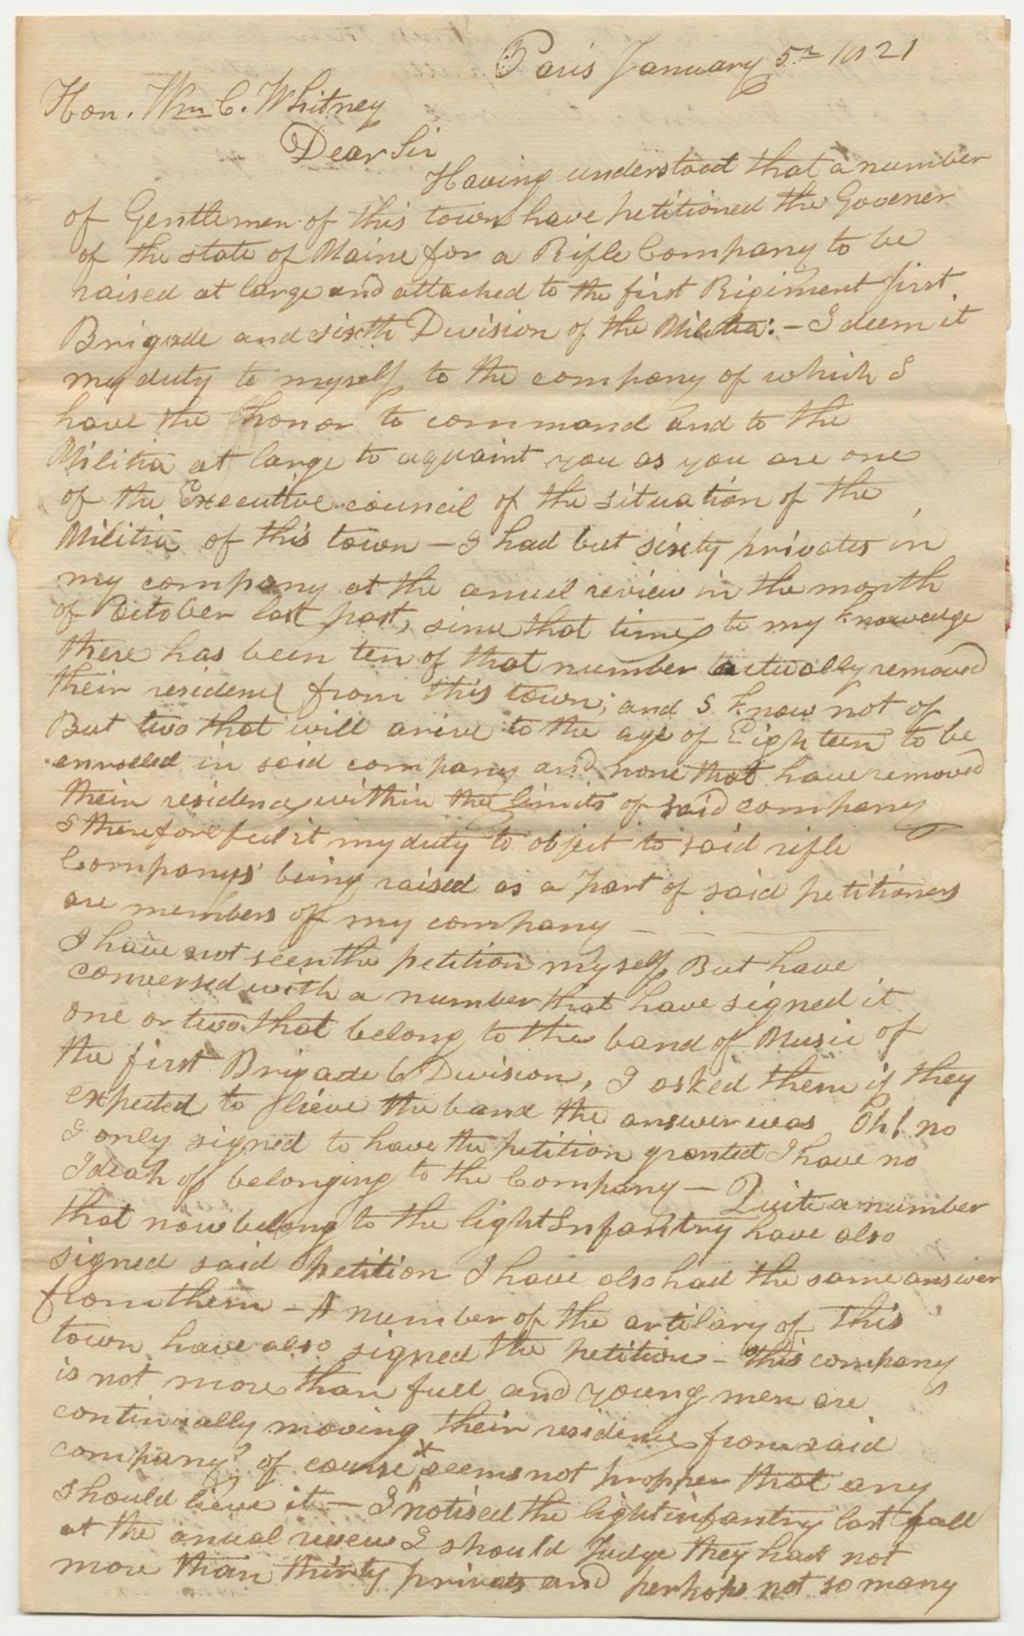 Paris January 5th 1821
Hon. Wm C. Whitney
Dear Sir
Having understood that a number
of Gentlemen of this town have petitioned the Govener
of the state of Maine for a Rifle Company to be
raised at large and attached to the first Rigiment first
Brigade and sixth Division of the Militia: – I deem it
my duty to myself to the company of which I
have the honor to command and to the
Militia at large to aquaint you as you are one
of the Executive council of the situation of the
Militia of this town – I had but sixty privates in
my company at the anuel review in the month
of October last past, since that time to my knowledge
there has been ten of that number actually removed
their residence from this town; and I know not of
But two that will arive to the age of Eighteen to be
enrolled in said company and none that have removed
their residence within the limits of said company
I therefore feel it my duty to object to said rifle
Companys being raised as a part of said petitioners
are members of my company –
I have not seen the petition myself But have
conversed with a number that have signed it
one or two that belong to the band of Music of
the first Brigade 6 Division, I asked them if they
expected to lieve the band the answer was Oh! no
I only signed to have the petition granted I have no
Ideah of belonging to the Company – Quite a number
that now belong to the light Infantry have also
signed said petition I have also had the same answer
from them – A number of the artilary of this
town have also signed the petition – this company
is not more than full and young men are
continually moving their residence from said
company of course seems not propper that any
should lieve it – I notised the light infantry last fall
at the anual review I should Judge they had not
more than thirty privates and perhaps not so many